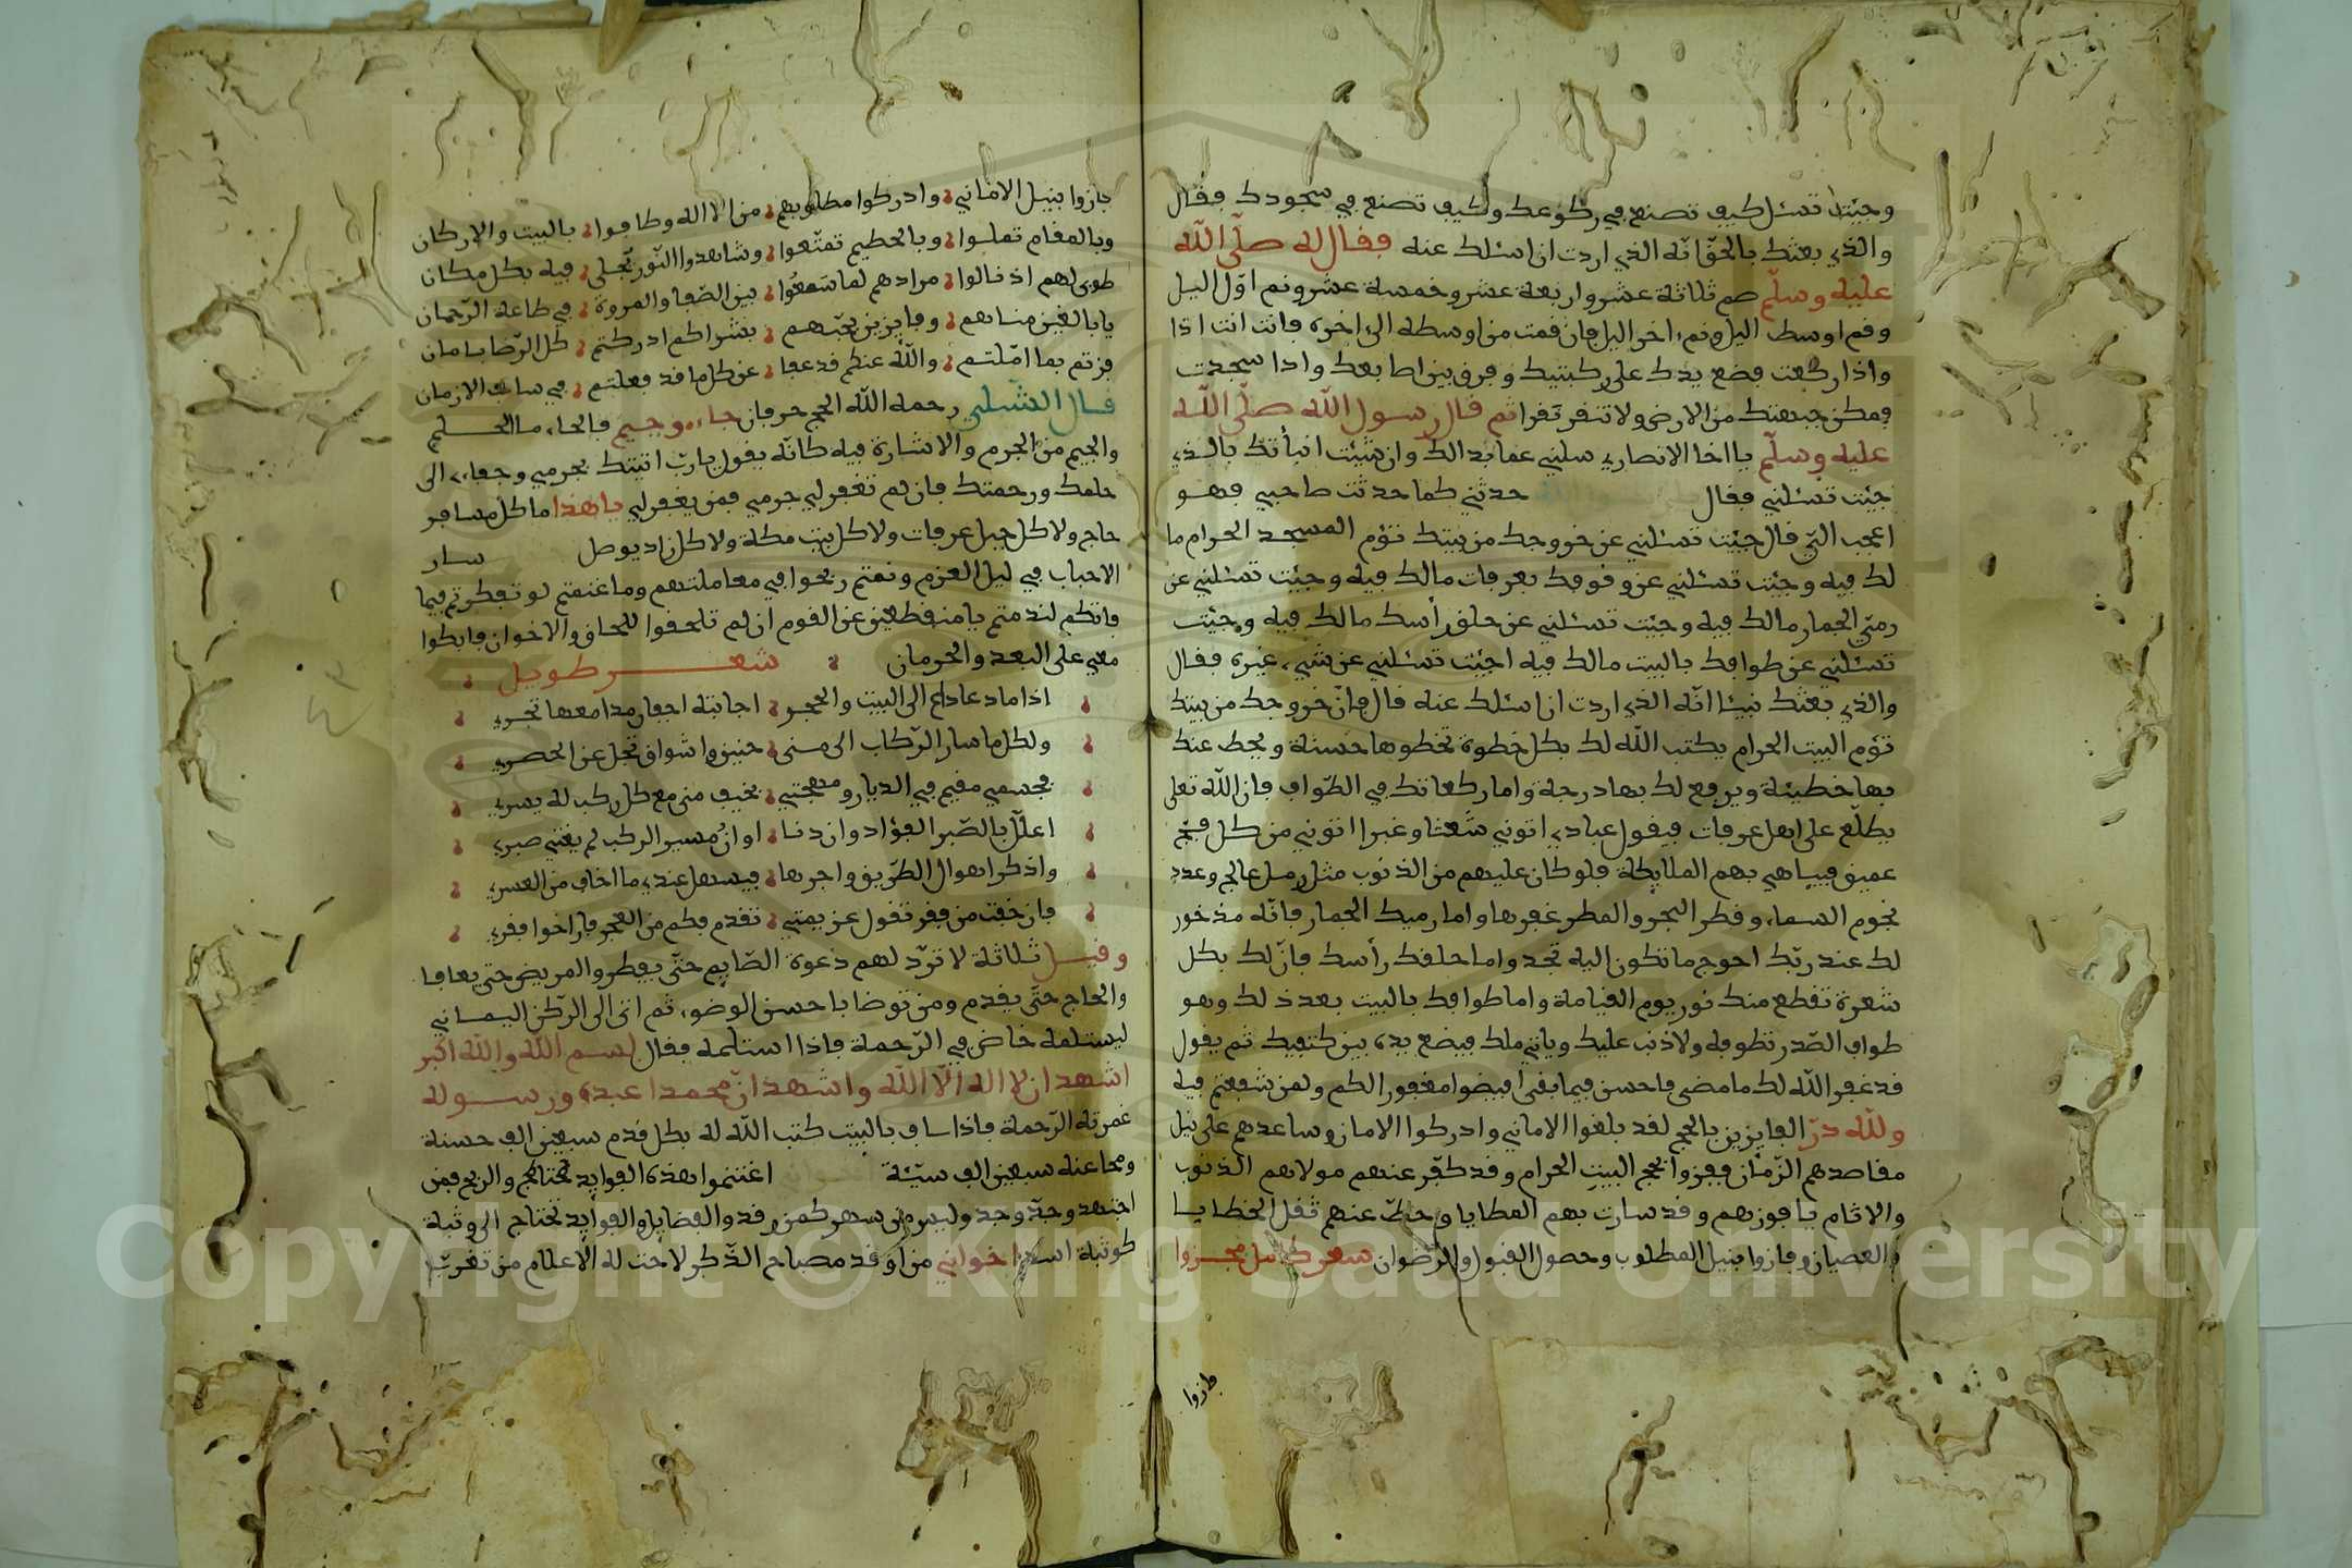 وجئت تسئل كيف تصنع في ركوعك وكيف تصنع في سجودك فقال
والذي بعثك بالحقّ انّه الذي اردت ان اسئلك عنه فقال له صلّى اللّه
عليه وسلّم صم ثلاثة عشر واربعة عشر وخمسة عشر ونم اوّل اليل
وقم اوسط اليل ونم اخر اليل فان قمت من اوسطه الى اخره فانت انت اذا
واذا ركعت فضع يدك على ركبتيك وفرق بين اصابعك واذا سجدت
فمكن جبهتك من الارض ولا تنقر نقرا ثم قال رسول اللّه صلّى اللّه
عليه وسلّم يا اخا الانصاري سلني عما بدالك وان شئت انبأتك بالذي
جئت تسئلني فقال حدثني كما حدثت صاحبي فهو
اعجب الي قال جئت تسئلني عن خروجك من بيتك تؤم المسجد الحرام ما
لك فيه وجئت تسئلني عن وقوفك بعرفات مالك فيه وجئت تسئلني عن
رمي الجمار مالك فيه وجئت تسئلني عن حلق رأسك مالك فيه وجئت
تسئلني عن طوافك بالبيت مالك فيه اجئت تسئلني عن شيء غيره فقال
والذي بعثك نبيئا انّه الذي اردت ان اسئلك عنه قال فانّ خروجك من بيتك
تؤم البيت الحرام يكتب اللّه لك بكل خطوة تخطوها حسنة ويحط عنك
بها خطيئة ويرفع لك بها درجة واما ركعاتك في الطّواف فان اللّه تعلى
يطّلع على اهل عرفات فيقول عبادي اتوني شعثا وغبرا اتوني من كل فج
عميق فيباهي بهم الملايكة فلو كان عليهم من الذنوب مثل رمل عالج وعدد
نجوم السماء وقطر البحر والمطر غفرها واما رميك الجمار فانّه مذخور
لك عند ربّك احوج ما تكون اليه تجد واما حلقك رأسك فانّ لك بكل
شعرة تقطع منك نور يوم القيامة واما طوافك بالبيت بعد ذلك وهو
طواف الصّدر تطوفه ولا ذنب عليك وياتي ملك فيضع يده بين كتفيك ثم يقول
قد غفر اللّه لك ما مضى فاحسن فيما بقى افيضوا مغفورا لكم ولمن شفعتم فيه
وللّه درّ الفايزين بالحج لقد بلغوا الاماني وادركوا الامان وساعدهم على نيل
مقاصدهم الزّمان ففزوا بحج البيت الحرام وقد كفّر عنهم مولاهم الذنوب
والاثام يا فوزهم وقد سارت بهم المطايا وحطّ عنهم ثقل الخطايا
والعصيان وفازوا بنيل المطلوب وحصول القبول والرّضوان شعر كامل مجزوا
فازوا
فازوا بنيل الاماني وادركوا مطلوبهم من الاله وطافوا بالبيت والاركان
وبالمقام تملوا وبالحطيم تمتّعوا وشاهدوا النّور تجلى فيه بكل مكان
طوبى لهم اذ نالوا مرادهم لما سعوا بين الصّفا والمروة في طاعة الرّحمان
يا بالغين مناهم وفايزين بحبّهم بشراكم ادركتم كل الرّضا بامان
فزتم بما امّلتم واللّه عنكم قد عفا عن كل ما قد فعلتم في سالف الازمان
قال الشبلي رحمه اللّه الحج حرفان حاء وجيم فالحاء من الحلم
والجيم من الجرم والاشارة فيه كانّه يقول يا ربّ اتيتك بجرمي وجفاءي الى
حلمك ورحمتك فان لم تغفر لي جرمي فمن يغفر لي يا هذا ما كل مسافر
حاج ولا كل جبل عرفات ولا كل بيت مكة ولا كل زاد يوصل سار
الاحباب في ليل العزم ونمتم ربحوا في معاملتهم وما غنمتم لو تفكرتم فيما
فاتكم لندمتم يا منقطعين عن القوم ان لم تلحقوا للحاق والاخوان فابكوا
معي على البعد والحرمان شعر طويل
اذا ما دعا داع الى البيت والحجر اجابته اجفان مدامعها تجري
ولكل ما سار الرّكاب الى منى حنين واشواق تجل عن الحصر
فجسمي مقيم في الديار ومهجتي بخيف منى مع كل ركب له يسري
اعلّل بالصّبر الفؤاد وان دنا اوان مسير الركب لم يغنني صبري
واذكر اهوال الطّريق واجرها فيسهل عندي ما اخاف من العسر
فان خفت من فقر تقول عزيمتي تقدم فكم من الفجر فاز اخوا فقر
وقيل ثلاثة لا تردّ لهم دعوة الصّايم حتّى يفطر والمريض حتى يعافا
والحاج حتّى يقدم ومن توضا باحسن الوضوء ثم اتى الى الرّكن اليماني
ليستلمه خاض في الرّحمة فاذا استلمه فقال بسم اللّه واللّه اكبر
اشهد ان لا اله الّا اللّه واشهد انّ محمدا عبده ورسوله
غمرته الرّحمة فاذا طاف بالبيت كتب اللّه له بكل قدم سبعين الف حسنة
ومحا عنه سبعين الف سيّئة اغتنموا هذه الفوايد والربح فمن
اجتهد وجدّ وجد وليس من سهر كمن رقد والفضايل والفوايد تحتاج الى وثبة
كوثبة اسد اخواني من اوقد مصباح الذّكر لاحت له الاعلام من تغرب
Copyright © King Saud University